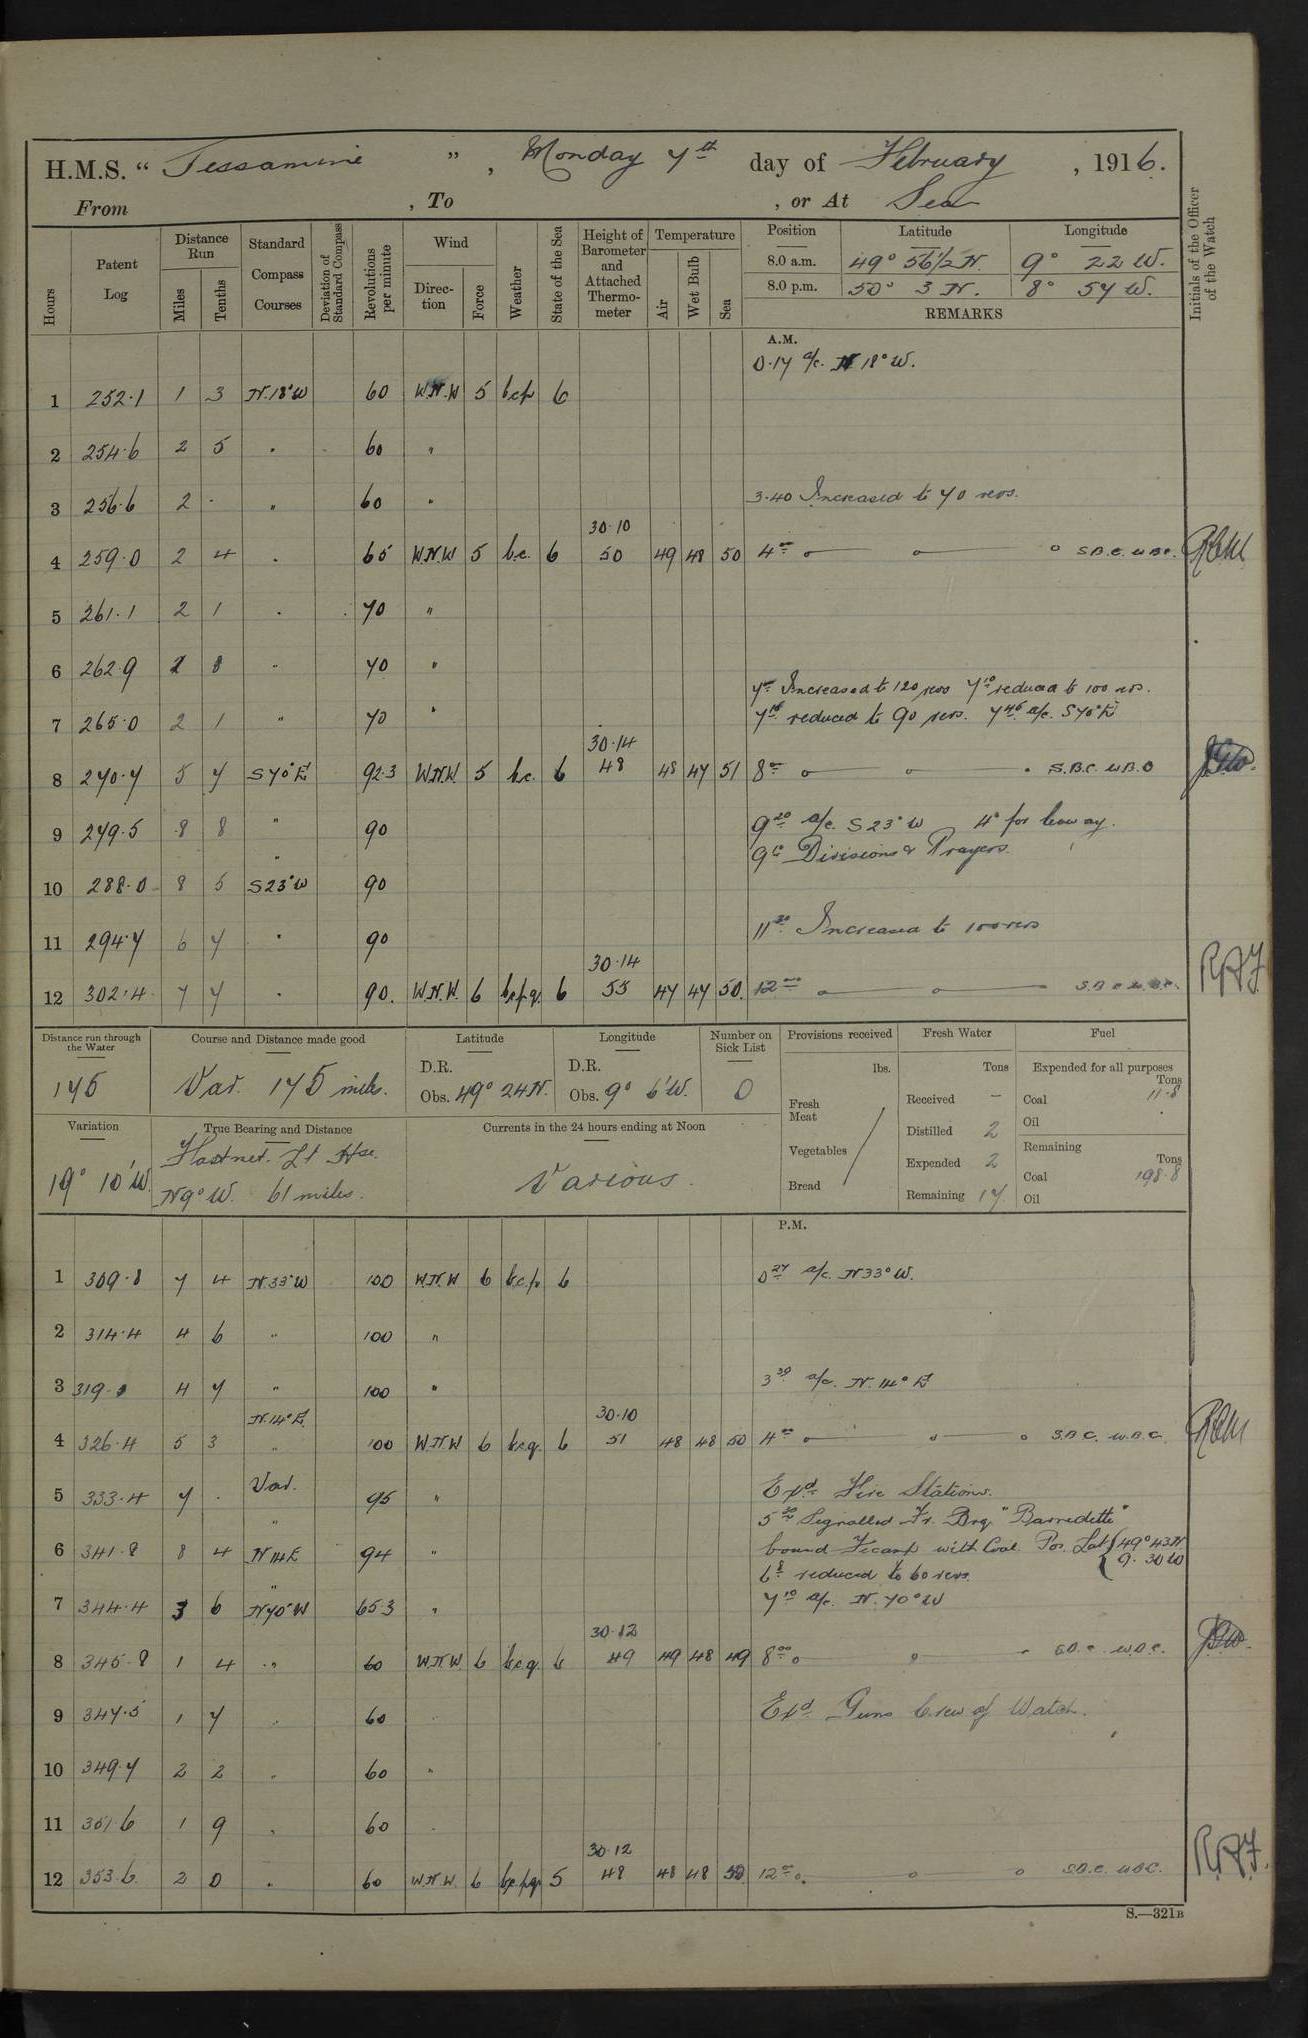 H.M.S. “ Jessamine ”, Monday 7th day of February, 1916.
From , To , or At Sea
Hours
Patent Log
Distance Run
Miles
Tenths
Standard Compass Courses
Deviation of Standard Compass
Revolutions per minute
Wind
Direction
Force
Weather
State of the Sea
Height of Barometer and Attached Thermometer
Temperature
Air
Wet Bulb
Sea
Position Latitude Longitude
8.0 a.m. 49° 56 1/2 N. 9° 22 W.
8.0 p.m. 50° 3 N. 8° 57 W.
REMARKS
Initials of the Officer of the Watch
A.M.
0.17 a/c. N 18° W.
1 252.1 1 3 N.18°W 60 W.N.W 5 bcp 6
2 254.6 2 5 " 60 "
3 256.6 2 . " 60 " 3.40 Increased to 70 revs.
30.10
4 259.0 2 4 " 65 W.N.W 5 b.c. 6 50 49 48 50 4.00 S.B.C. W.B.C.
5 261.1 2 1 " 70 "
6 262.9 1 8 " 70 "
7.00 Increased to 120 revs 7.10 reduced to 100 revs.
7 265.0 2 1 " 70 " reduced to 90 revs. 7.45 a/c. S70°E
30.14
8 270.7 5 7 S70°E 92.3 W.N.W. 5 b.c. 6 48 48 47 51 8.00 S.B.C. W.B.O
9 279.5 8 8 " 90 9.20 a/c. S23°W 4° for leeway.
Divisions & Prayers.
10 288.0 8 5 S23°W 90
11 294.7 6 7 " 90 11.30 Increased to 100 revs
30.14
12 302.4 7 7 " 90. W.N.W. 6 bcpq. 6 55 47 47 50. 12.00
Distance run through the Water
175
Course and Distance made good
Var. 175 miles.
Latitude
D.R.
Obs. 49° 24 N.
Longitude
D.R.
Obs. 9° 6' W.
Number on Sick List
0
Provisions received
lbs.
Fresh Meat
Vegetables
Bread
Fresh Water
Tons
Received –
Distilled 2
Expended 2
Remaining 17
Fuel
Expended for all purposes
Tons
Coal 11.8
Oil
Remaining
Tons
Coal 198.8
Oil
Variation
19° 10' W.
True Bearing and Distance
Fastnet. Lt Hse.
N9°W. 61 miles.
Currents in the 24 hours ending at Noon
Various.
P.M.
1 309.8 7 4 N33°W 100 W.N.W 6 b.c.p. 6 0.27 a/c. N33°W.
2 314.4 4 6 " 100 "
3 319.1 4 7 " 100 " 3.30 a/c. N.14°E
N.14°E. 30.10
4 326.4 5 3 " 100 W.N.W 6 b.c.q. 6 51 48 48 50 4.00 S.B.C. W.B.C.
5 333.4 7 . Var. 95 " Exd. Fire Stations.
" 5.30 Signalled Fr. Brq. "Barredette"
6 341.8 8 4 N14E 94 " bound Fecamp with Coal. Pos. Lat (49° 43 N
9. 30 W
reduced to 60 revs.
7 344.4 3 6 N70°W 65.3 " 7.10 a/c. N.70°W
30.12
8 345.8 1 4 " 60 W.N.W 6 b.c.q. 6 49 49 48 49 8.00 S.B.C. W.B.C.
9 347.5 1 7 " 60 Exd. Guns Crew of Watch.
10 349.7 2 2 " 60 "
11 351.6 1 9 " 60
30.12
12 353.6 2 0 " 60 W.N.W. 6 bcpq. 5 48 48 48 50 12.00 S.B.C. W.B.C.
S.—321B